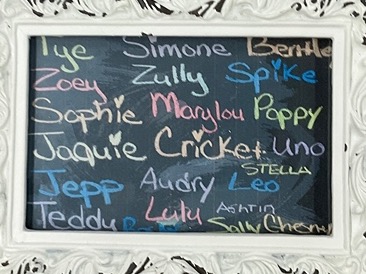 Tye Simone
Zoey Zully Spike
Sophie Marylou Poppy
Jaquie Cricket Uno
STELLA
Jepp Audry Leo
Teddy Lulu
Sally Cherry